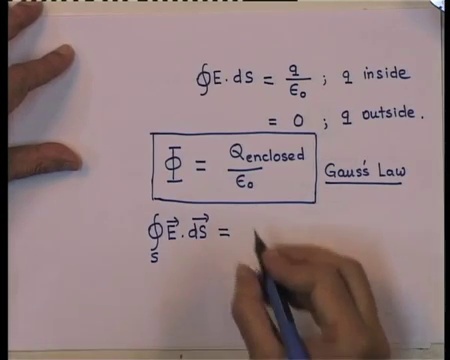 ∮E.ds = q/ϵ₀ ; q inside
= 0 ; q outside.
Φ = Qenclosed/ϵ₀ Gauss's Law
∮ₛ E⃗.ds⃗ =